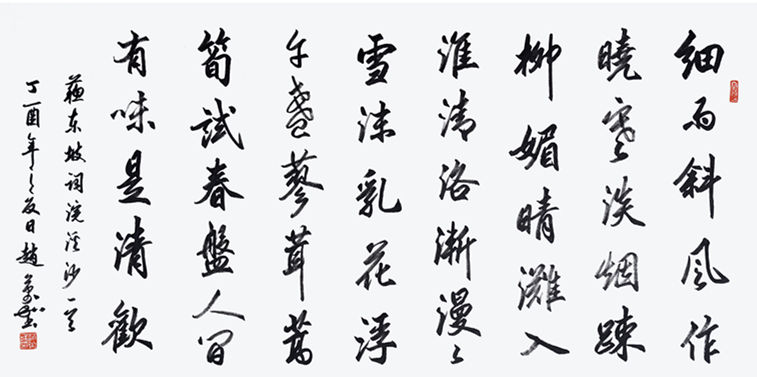 細雨斜風作
曉寒淡烟踈
柳媚晴灘入
淮清洛漸漫々
雪沫乳花浮
午盞蓼茸蒿
筍試春盤人间
有味是清歡
蘇東坡詞浣溪沙一首
丁酉年之夏日趙